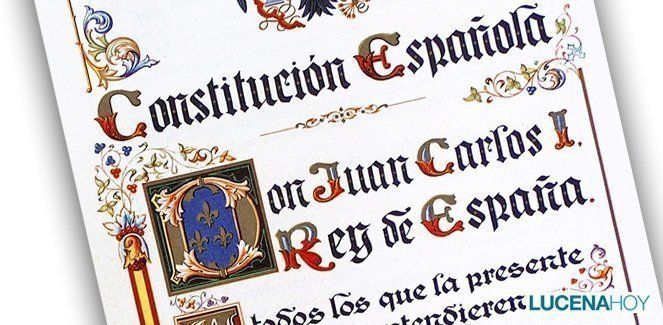 Constitución Española
Don Juan Carlos I.
Rey de España.
A todos los que la presente
entendieren
LUCENAHOY